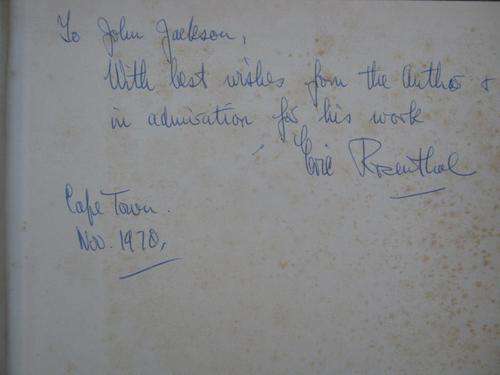 To John Jackson,
With best wishes from the Author &
in admiration for his work
Eric Rosenthal
Cape Town.
Nov. 1970,